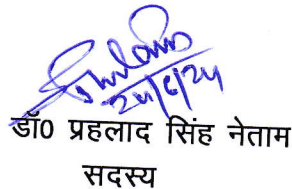 24/6/24
डॉ0 प्रहलाद सिंह नेताम
सदस्य